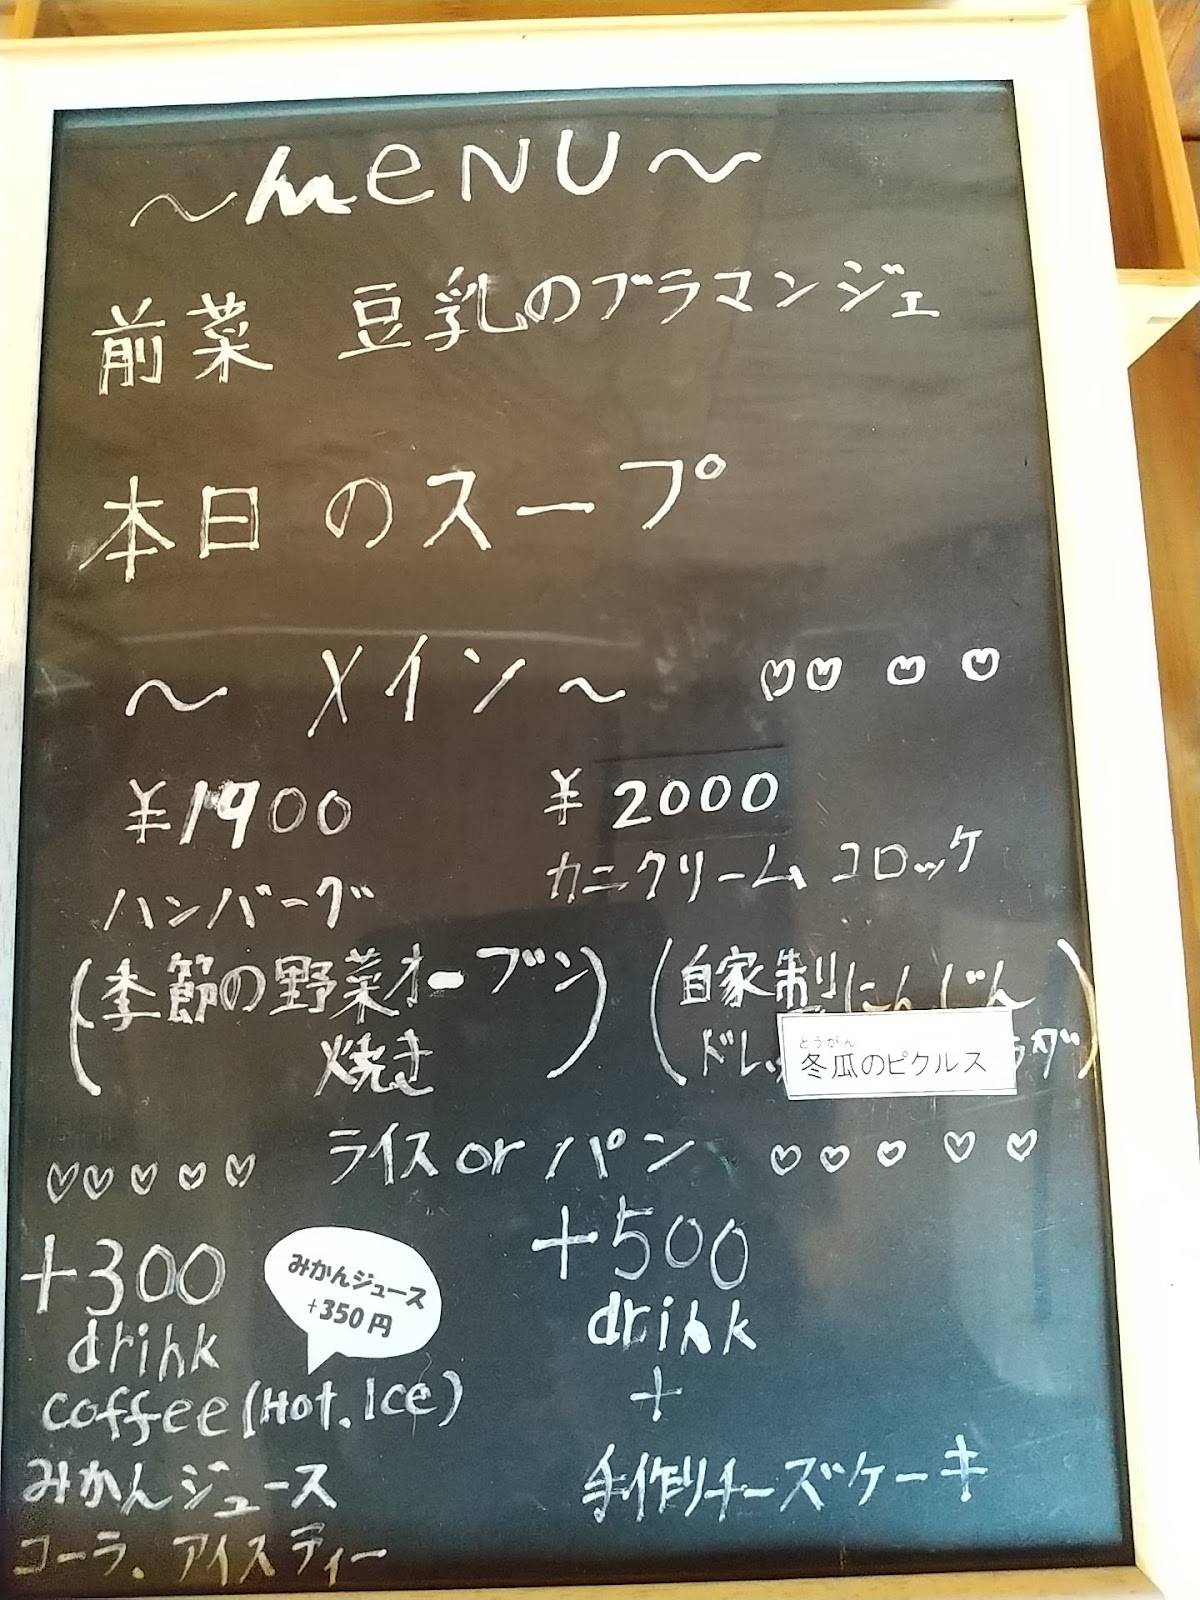 ～MENU～
前菜 豆乳のブラマンジェ
本日のスープ
～メイン～
¥1900
ハンバーグ
(季節の野菜オーブン
焼き)
¥2000
カニクリームコロッケ
(自家製にんじん
ドレ
ラダ)
とうがん
冬瓜のピクルス
ライスorパン
+300
drink
coffee(Hot.Ice)
みかんジュース
コーラ.アイスティー
みかんジュース
+350円
+500
drink
+
手作りチーズケーキ